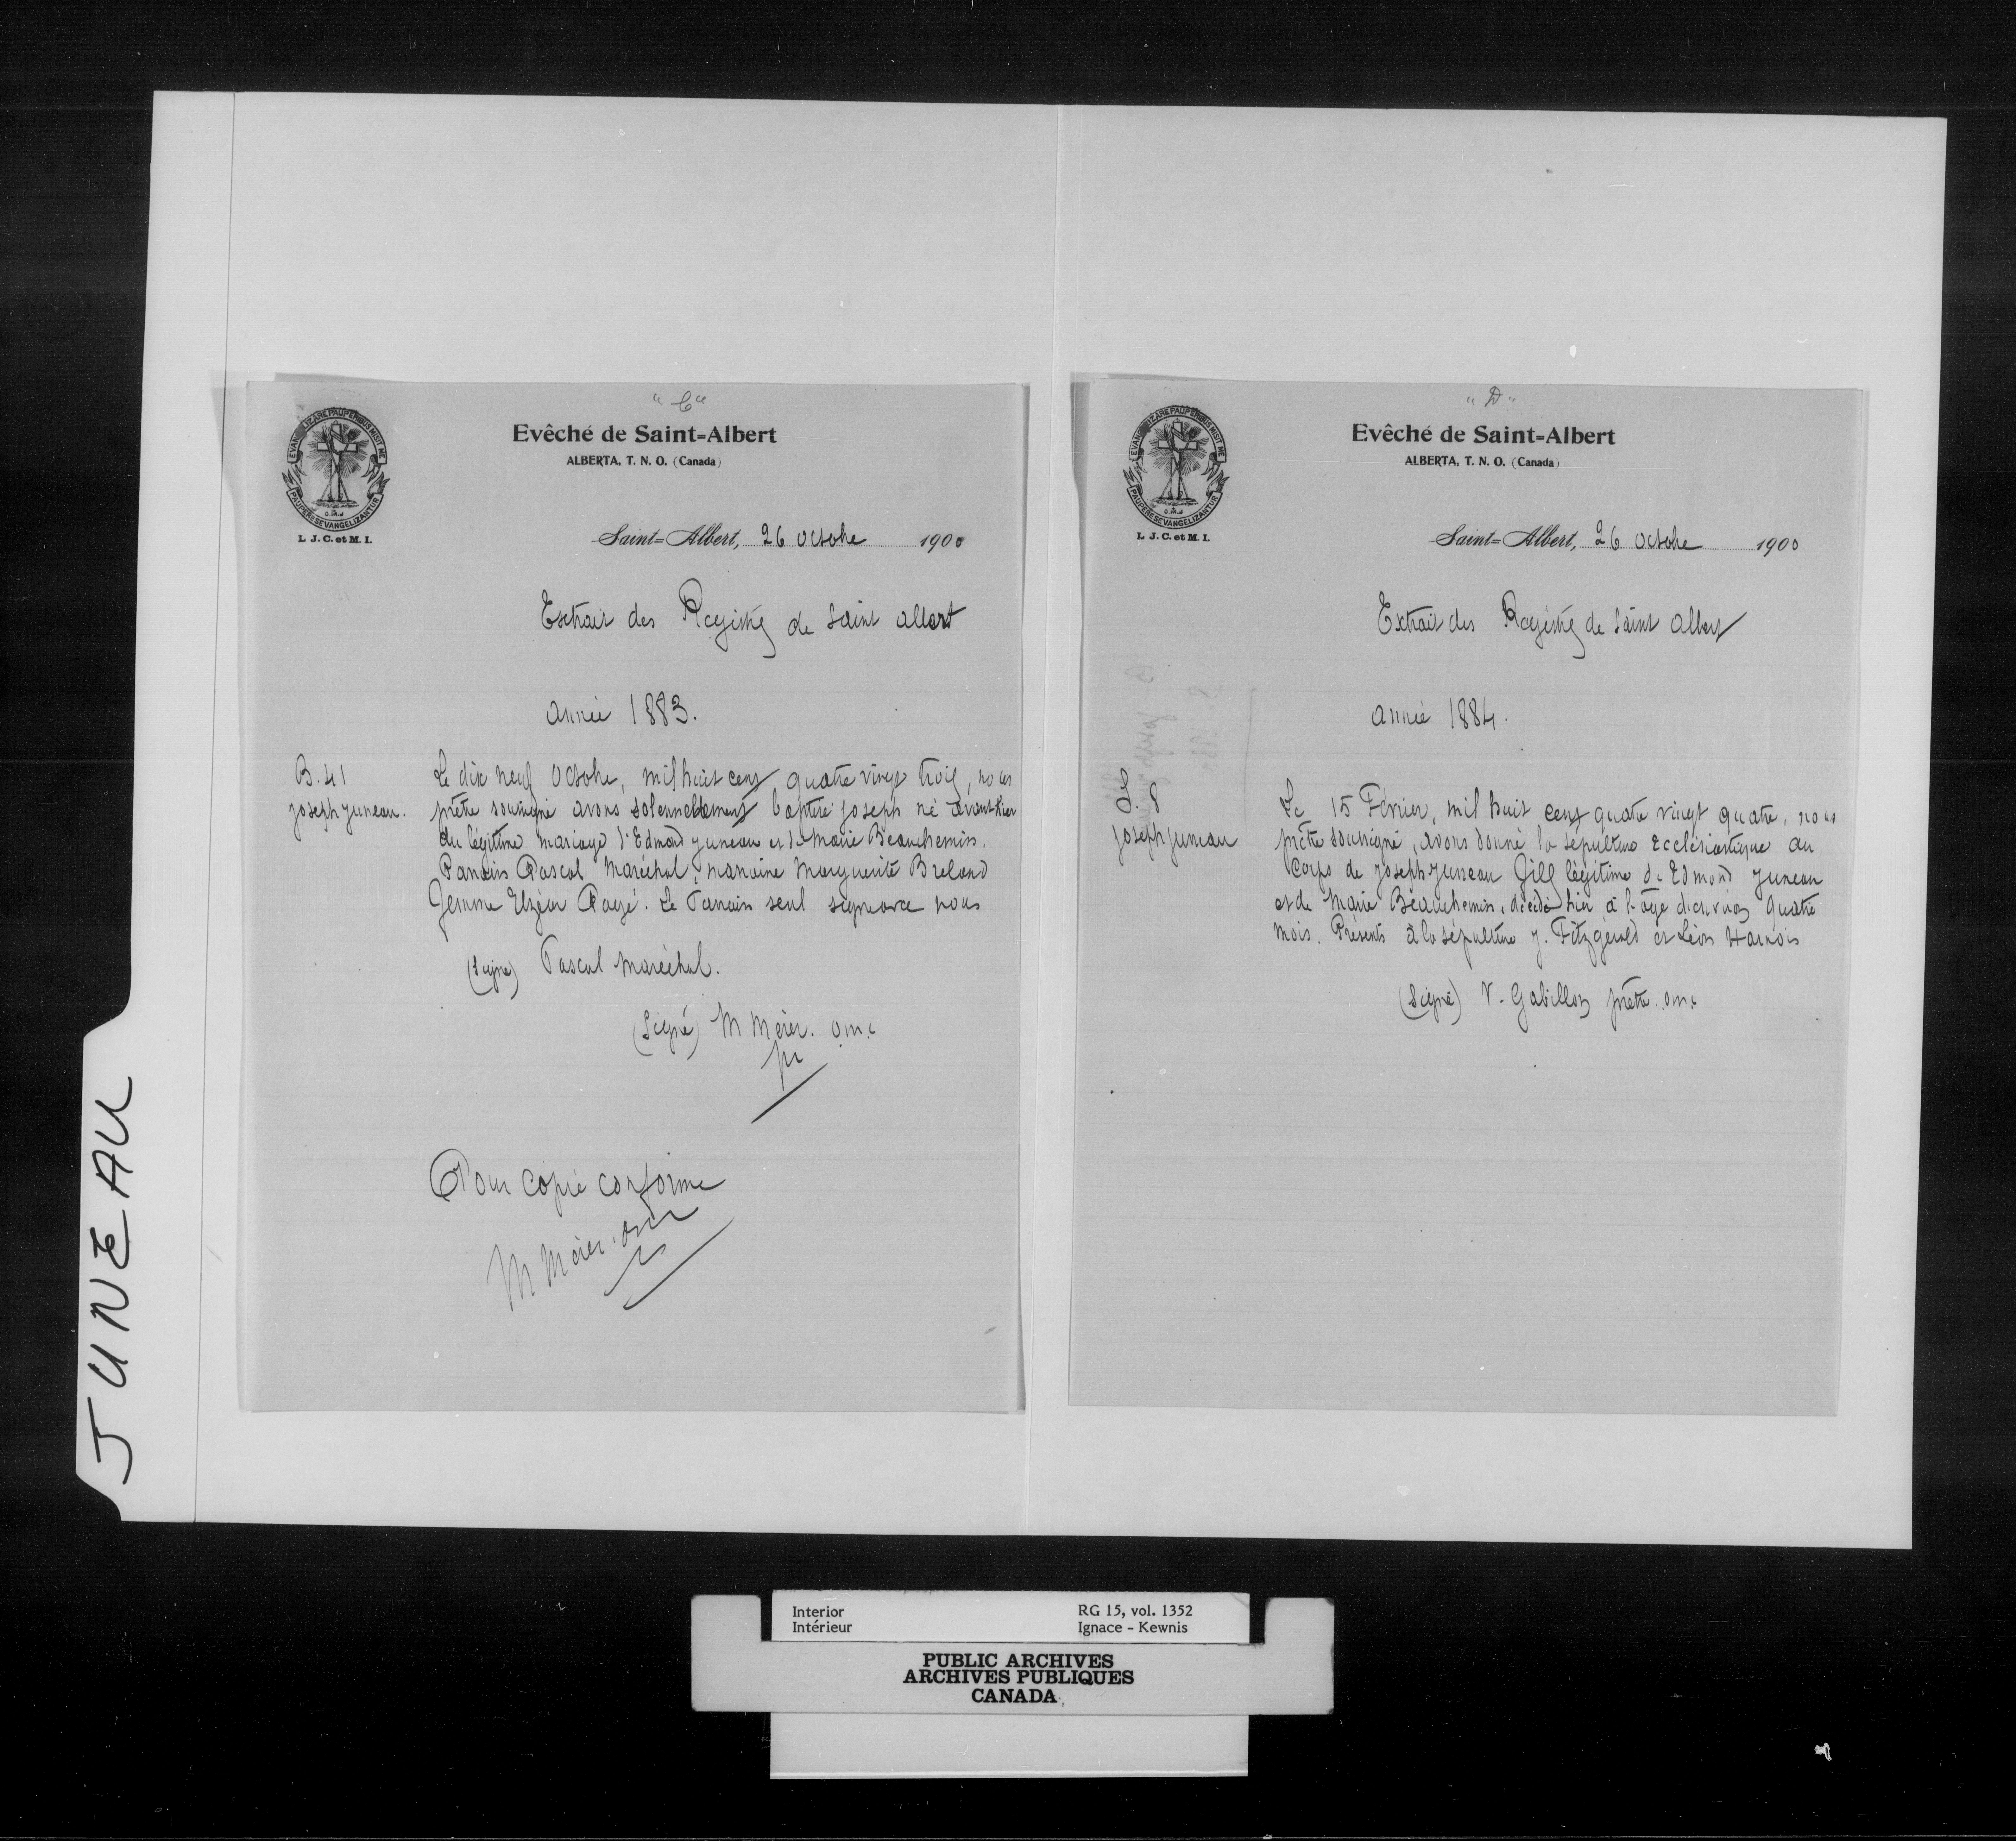 JUNEAU
"C"
EVANGELIZARE PAUPERIBUS MISIT ME
PAUPERES EVANGELIZANTUR
O.M.J
L. J. C. et M. I.
Evêché de Saint-Albert
ALBERTA, T. N. O. (Canada)
Saint-Albert, 26 Octobre 1900
Extrait des Registres de Saint Albert
Année 1883.
B. 41
Joseph Juneau.
Le dix neuf Octobre, mil huit cent quatre vingt trois, nous
prêtre soussigné avons solennellement baptisé Joseph né avant hier
du légitime mariage d'Edmond Juneau et de Marie Beauchemin.
Parrain Pascal Maréchal, marraine Marguerite Breland
femme Elzéar Pagé. Le Parrain seul signera nous
(Signé) Pascal Maréchal.
(Signé) M Merer. o.m.i
pr
Pour copie conforme
M Merer. omi
"D"
EVANGELIZARE PAUPERIBUS MISIT ME
PAUPERES EVANGELIZANTUR
O.M.J
L. J. C. et M. I.
Evêché de Saint-Albert
ALBERTA, T. N. O. (Canada)
Saint-Albert, 26 Octobre 1900
Extrait des Registres de Saint Albert
Année 1884.
S. 8
Joseph Juneau
Le 15 Février, mil huit cent quatre vingt quatre, nous
prêtre soussigné, avons donné la sépulture Ecclésiastique au
Corps de Joseph Juneau fils légitime de Edmond Juneau
et de Marie Beauchemin, décédé hier à l'âge d'environ quatre
mois. Présents à la sépulture J. Fitzgérald et Léon Harnois
(Signé) V. Gabillon prêtre. o.m.i
Interior
Intérieur
RG 15, vol. 1352
Ignace - Kewnis
PUBLIC ARCHIVES
ARCHIVES PUBLIQUES
CANADA